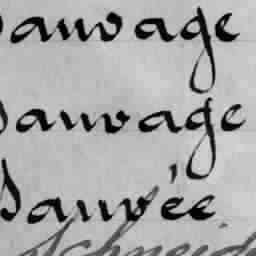 Sauvage
Sauvage
Sauvée
Schneid